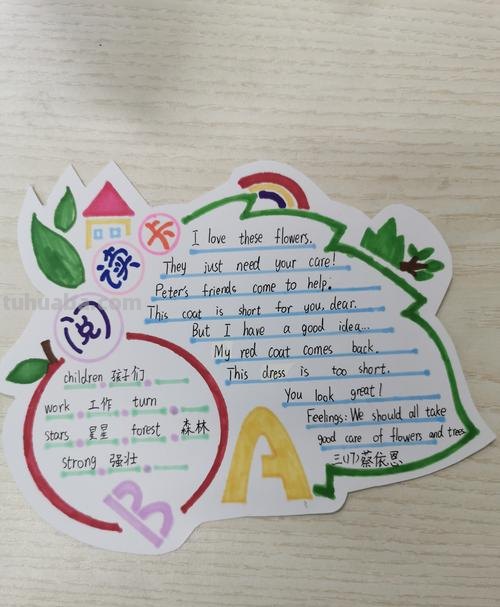 阅读卡
I love these flowers.
They just need your care!
Peter's friends come to help.
This coat is short for you, dear.
But I have a good idea...
My red coat comes back.
This dress is too short.
You look great!
Feelings: We should all take
good care of flowers and trees.
三(17)蔡依恩
children 孩子们
work 工作 turn
stars 星星 forest 森林
strong 强壮
B
A
tuhuaba.com